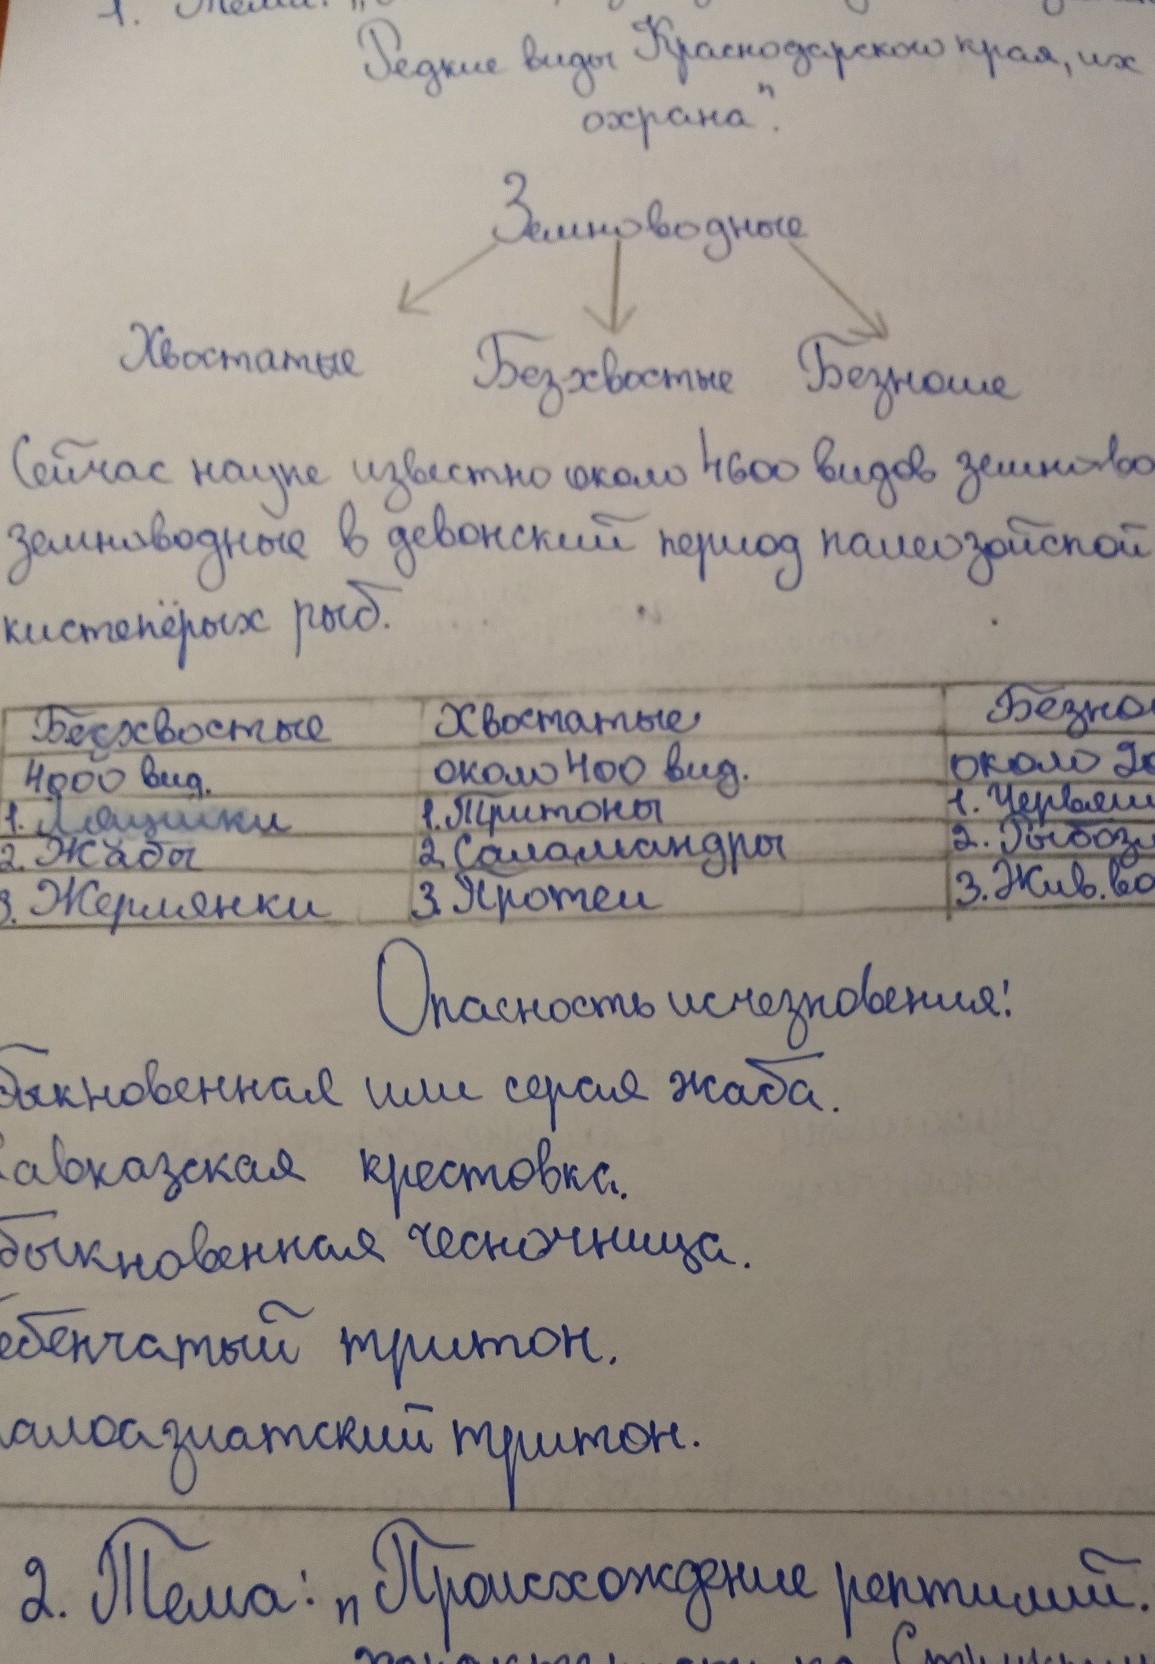 1. Тема: „
Редкие виды Краснодарского края, их
охрана".
Земноводные
Хвостатые Безхвостые Безногие
Сейчас науке известно около 4600 видов земново
земноводные в девонский период палеозойской
кистепёрых рыб.
Бесхвостые Хвостатые Безно
4000 вид. около 400 вид. около 20
1. Лягушки 1. Тритоны 1. Червяги
2. Жабы 2. Саламандры 2. Рыбозм
3. Жерлянки 3. Протеи 3. Жив. во
Опасность исчезновения:
быкновенная или серая жаба.
авказская крестовка.
быкновенная чесночница.
ебенчатый тритон.
алоазиатский тритон.
2. Тема: „Происхождение рептилий.